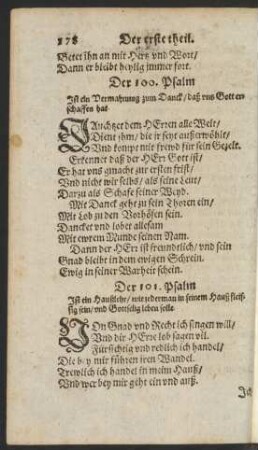 178 Der erste theil.
Betet ihn an mit Hertz vnd Wort/
Dann er bleibt heylig immer fort.
Der 100. Psalm
Ist ein Vermahnung zum Danck/ daß vns Gott er-
schaffen hat.
JAuchtzet dem HErren alle Welt/
Dient ihm/ die ir seyt außerwöhlt/
Vnd kompt mit frewd für sein Gezelt.
Erkennet daß der HErr Gott ist/
Er hat vns gmacht zur ersten frist/
Vnd nicht wir selbs/ als seine Leut/
Darzu als Schafe seiner Weyd.
Mit Danck geht zu sein Thoren ein/
Mit Lob zu den Vorhöfen sein.
Dancket vnd lobet allesam
Mit ewrem Munde seinen Nam.
Dann der HErr ist freundlich/ vnd sein
Gnad bleibt in dem ewigen Schrein.
Ewig in seiner Warheit schein.
Der 101. Psalm
Ist ein Haußlehr/ wie jederman in seinem Hauß fleis-
sig sein/ vnd Gottselig leben solle.
VOn Gnad vnd Recht ich singen will/
Vnd dir HErre lob sagen vil.
Fürsichtig vnd redlich ich handel/
Die bey mir führen iren Wandel.
Trewlich ich handel in meim Hauß/
Vnd wer bey mir geht ein vnd auß.
Ich